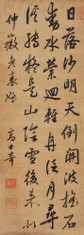 日落沙明天倒開波搖石
動水縈迴輕舟泛月尋
溪轉疑是山陰雪後來
高士奇